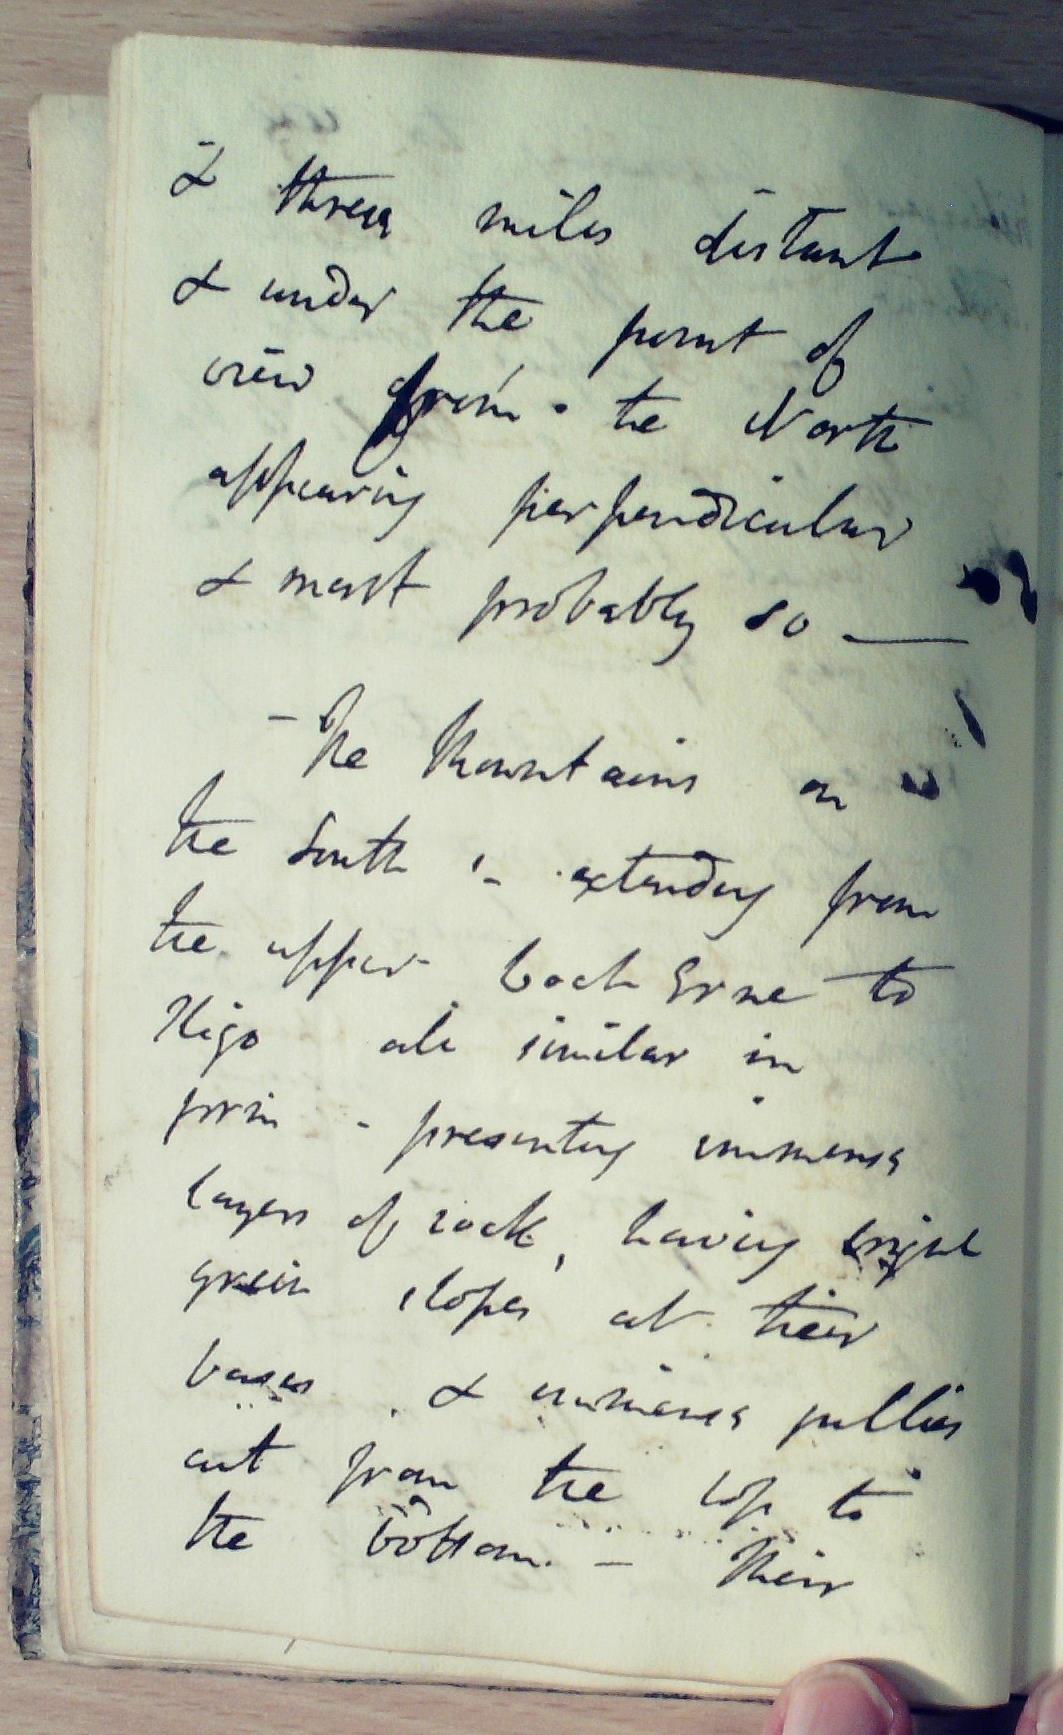 & three miles distant
& under the point of
view from the North
appearing perpendicular
& most probably so —
– The Mountains on
the South – extending from
the upper Loch Erne to
Sligo are similar in
form – presenting immense
layers of rock, having bright
green slopes at their
bases, & immense gullies
cut from the top to
the bottom. – Their